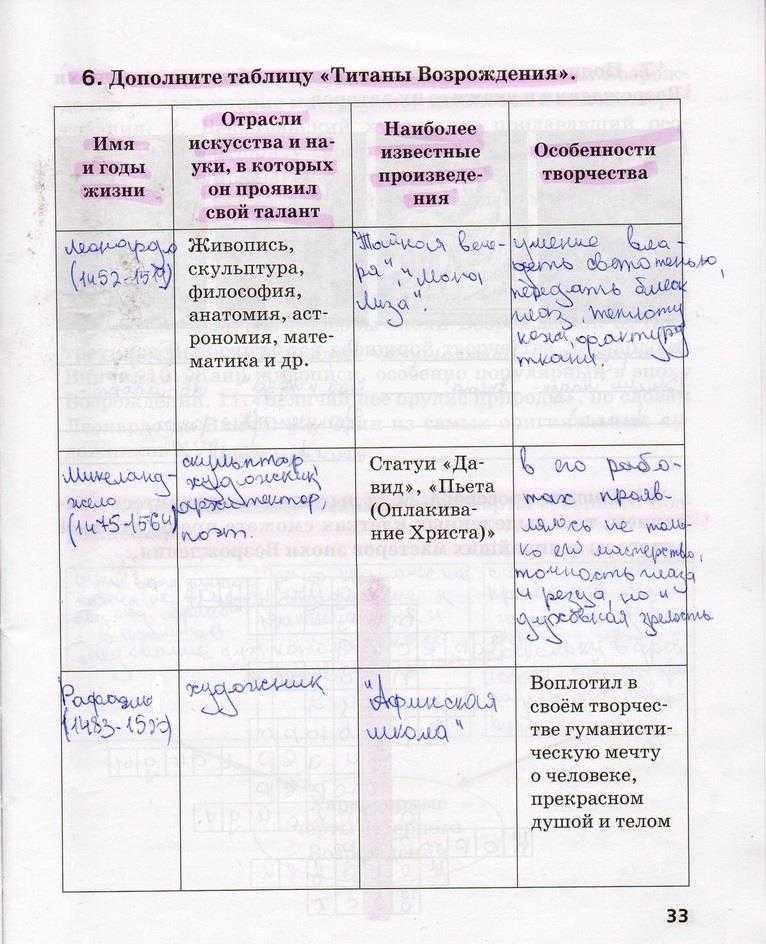 6. Дополните таблицу «Титаны Возрождения».
Имя
и годы
жизни
Отрасли
искусства и на-
уки, в которых
он проявил
свой талант
Наиболее
известные
произведе-
ния
Особенности
творчества
Леонардо
(1452-1519)
Живопись,
скульптура,
философия,
анатомия, аст-
рономия, мате-
матика и др.
"Тайная вече-
ря", "Мона
Лиза".
умение вла-
деть светотенью,
передать блеск
глаз, теплоту
кожи, фактуру
ткани
Микеланд-
жело
(1475-1564)
скульптор,
художник,
архитектор,
поэт.
Статуи «Да-
вид», «Пьета
(Оплакива-
ние Христа)»
в его рабо-
тах прояв-
лялось не толь-
ко его мастерство,
точность глаза
и резца, но и
духовная зрелость
Рафаэль
(1483-1520)
художник
"Афинская
школа"
Воплотил в
своём творчес-
тве гуманисти-
ческую мечту
о человеке,
прекрасном
душой и телом
33